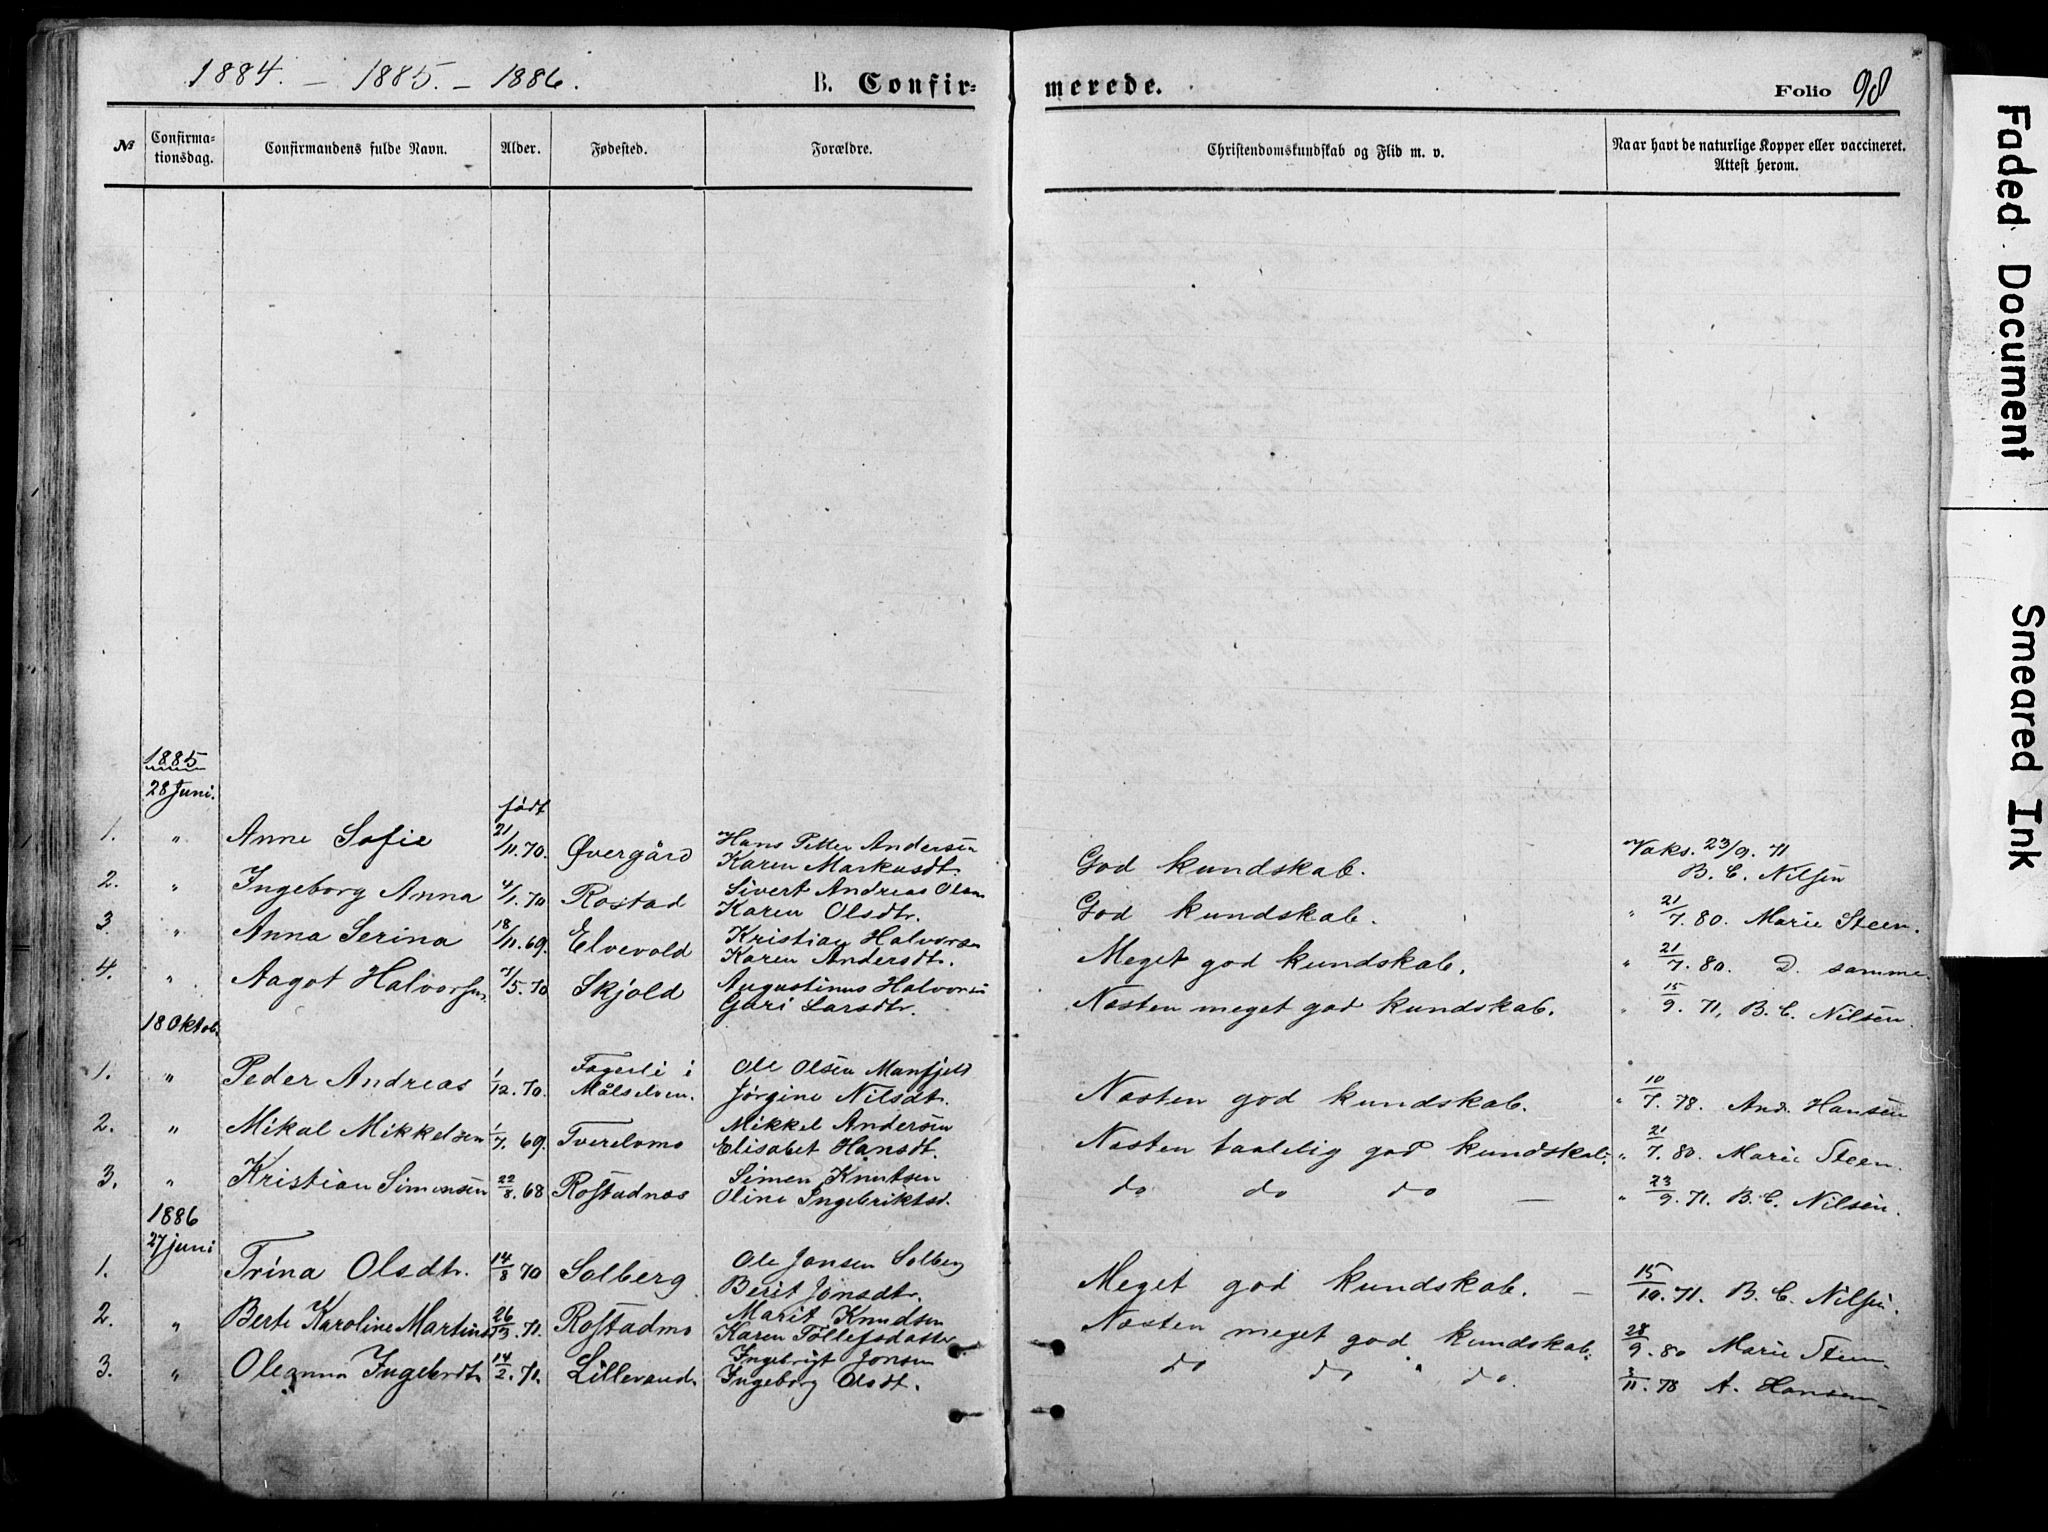 1884. – 1885. – 1886.
B. Confirmerede.
Folio 98
№ Confirmationsdag. Confirmandens fulde Navn. Alder. Fødested. Forældre. Christendomskundskab og Flid m. v. Naar havt de naturlige Kopper eller vaccineret. Attest herom.
1885
28 Juni.
født
1. " Anne Sofie 21/11.70. Øvergård Hans Petter Andersen God kundskab. Vaks. 23/9. 71
Karen Markusdt. B. C. Nilsen
2. " Ingeborg Anna 4/1.70 Rostad Sivert Andreas Olsen God kundskab. " 21/7. 80. Marie Steen.
Karen Olsdtr.
3. " Anna Serina 18/11.69. Elvevold Kristian Halvorsen Meget god kundskab. " 21/7. 80. D. samme
Karen Andersdt.
4. " Aagot Halvorsen 7/5.70 Skjold Augustinus Halvorsen Næsten meget god kundskab. " 15/9. 71, B. C. Nilsen.
Guri Larsdtr.
18 Oktob.
1. " Peder Andreas 1/12.70. Fagerli i Målselven. Ole Olsen Manfjeld Næsten god kundskab. " 10/7. 78. And. Hansen
Jørgine Nilsdt.
2. " Mikal Mikkelsen 1/7.69. Tverelvmo Mikkel Andersen Næsten taalelig god kundskab. " 21/7. 80. Marie Steen.
Elisabet Hansdt.
3. " Kristian Simonsen 22/8.68 Rostadnæs Simen Knutsen do do do — " 23/9. 71. B. C. Nilsen.
Oline Ingebriktsd.
1886
27 juni
1. Trina Olsdtr. 14/8 70 Solberg Ole Jonsen Solberg Meget god kundskab. — 15/10. 71. B. C. Nilsen.
Berit Jonsdtr.
2. " Berte Karoline 26/3.71. Rostadmo Marit Knudsen Næsten meget god kundskab. 28/9. 80 Marie Steen
Karen Tollefsdatter
3. " Oleanna Ingebrdt. 14/2.71. Lillevand. Ingebrigt Jonsen do do " do. 3/11. 78 A. Hansen
Ingeborg Olsdt.
Faded Document
Smeared Ink